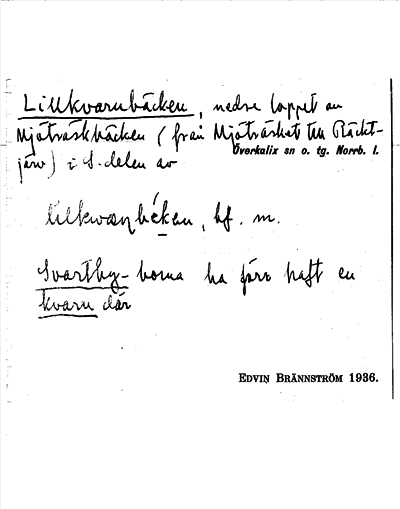 Lillkvarnbäcken, nedre loppet av
Mjöträskbäcken (från Mjöträsket till Räckt-
järv) i S. delen av
Överkalix sn o. tg. Norrb. l.
bf. m.
Svartby-borna ha förr haft en
kvarn där
EDVIN BRÄNNSTRÖM 1936.